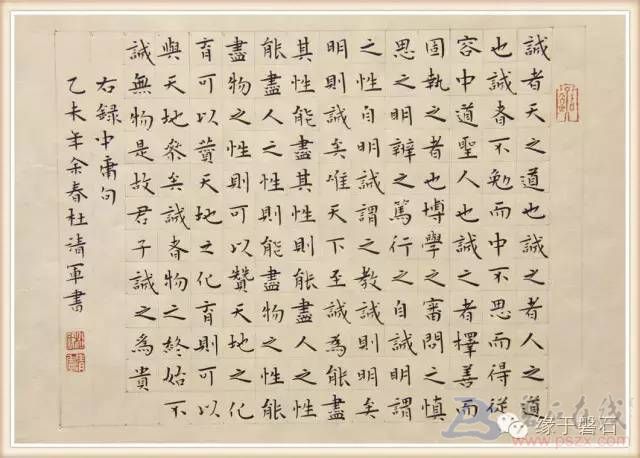 誠者天之道也誠之者人之道
也誠者不勉而中不思而得從
容中道聖人也誠之者擇善而
固執之者也博學之審問之慎
思之明辨之篤行之自誠明謂
之性自明誠謂之教誠則明矣
明則誠矣唯天下至誠為能盡
其性能盡其性則能盡人之性
能盡人之性則能盡物之性能
盡物之性則可以贊天地之化
育可以贊天地之化育則可以
與天地參矣誠者物之終始不
誠無物是故君子誠之為貴
右錄中庸句
乙未年余春杜清軍書
缘于磐石
磐石在线
www.pszx.com